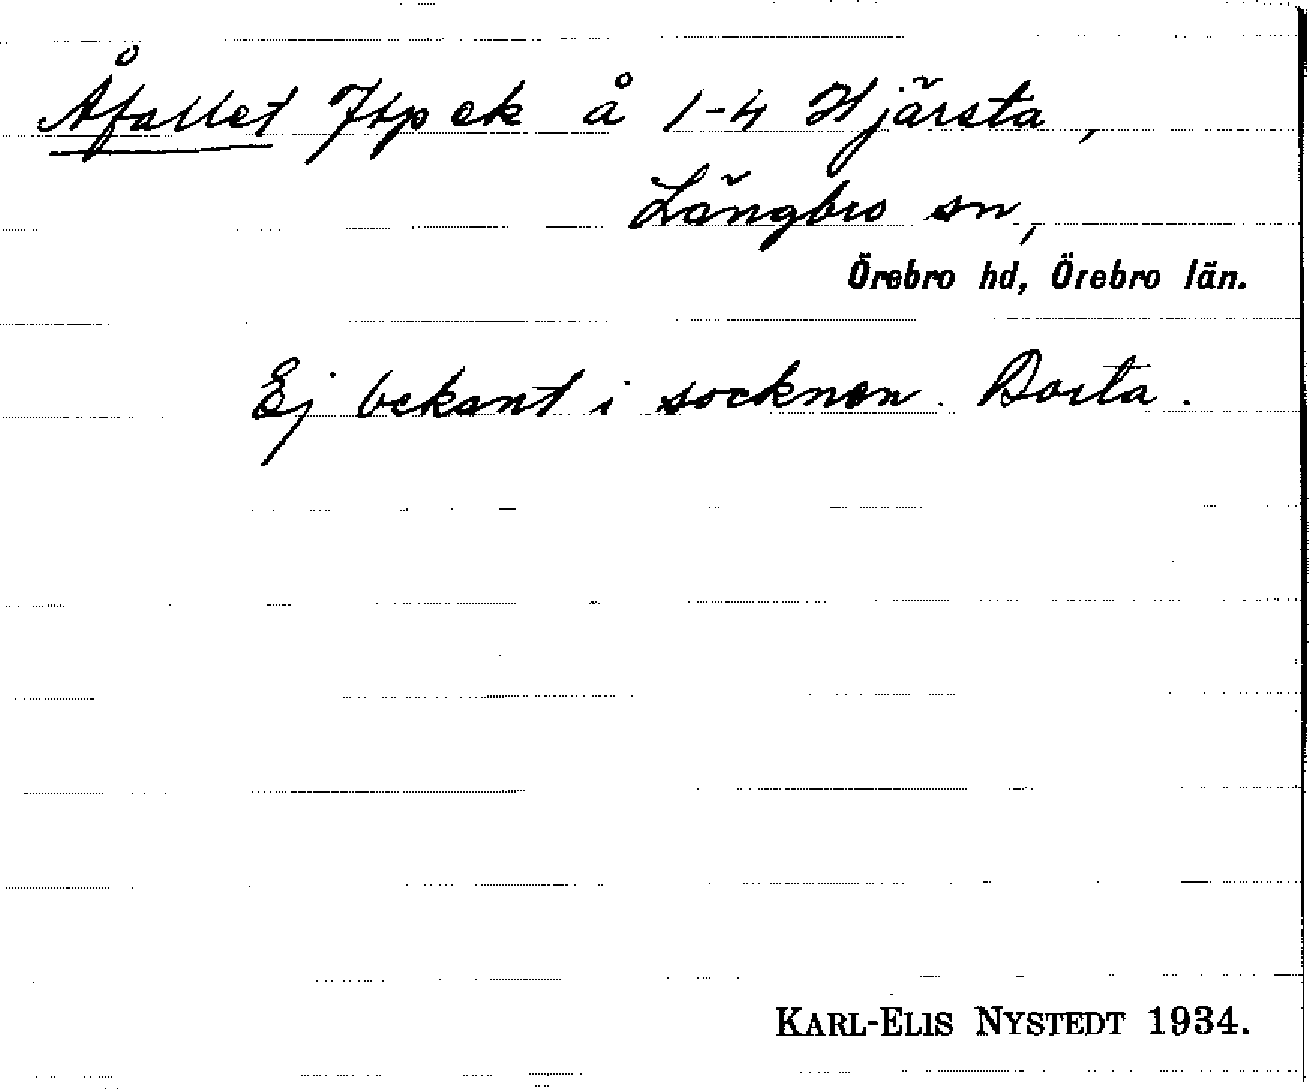 Åfallet Jtp ek å 1-4 Hjärsta,
Längbro sn,
Örebro hd, Örebro län.
Ej bekant i socknen. Borta.
KARL-ELIS NYSTEDT 1934.